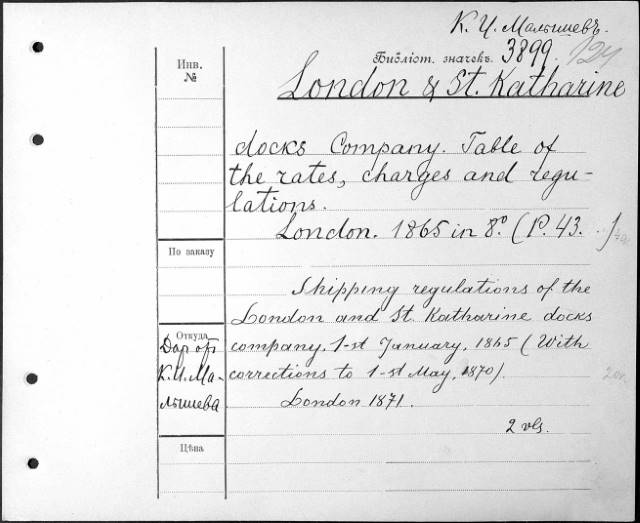 К. И. Малышевъ.
Инв.
№
Библіот. значекъ. 3899. 124
London & St. Katharine
docks Company. Table of
the rates, charges and regu-
lations.
London. 1865 in 8º. (P. 43. )
По заказу
Shipping regulations of the
London and St. Katharine docks
Откуда
Даръ отъ
company. 1-st January, 1865 (With
К. И. Ма-
corrections to 1-st May, 1870).
лышева
London 1871.
2 vls.
Цѣна